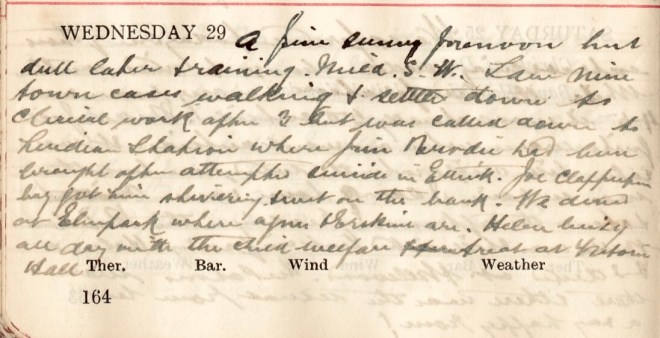 WEDNESDAY 29 A fine sunny forenoon but
dull later & raining. Mild. S.W. Saw nine
town cases walking & settled down to
Clerical work after 3 but was called down to
where Jim Brodie had been
brought after attempted suicide in Ettrick. Joe
had got him shivering out on the bank. We dined
at Elmpark where Agnes & Erskine are. Helen busy
all day with the child welfare treat at
Hall
Ther. Bar. Wind Weather
164